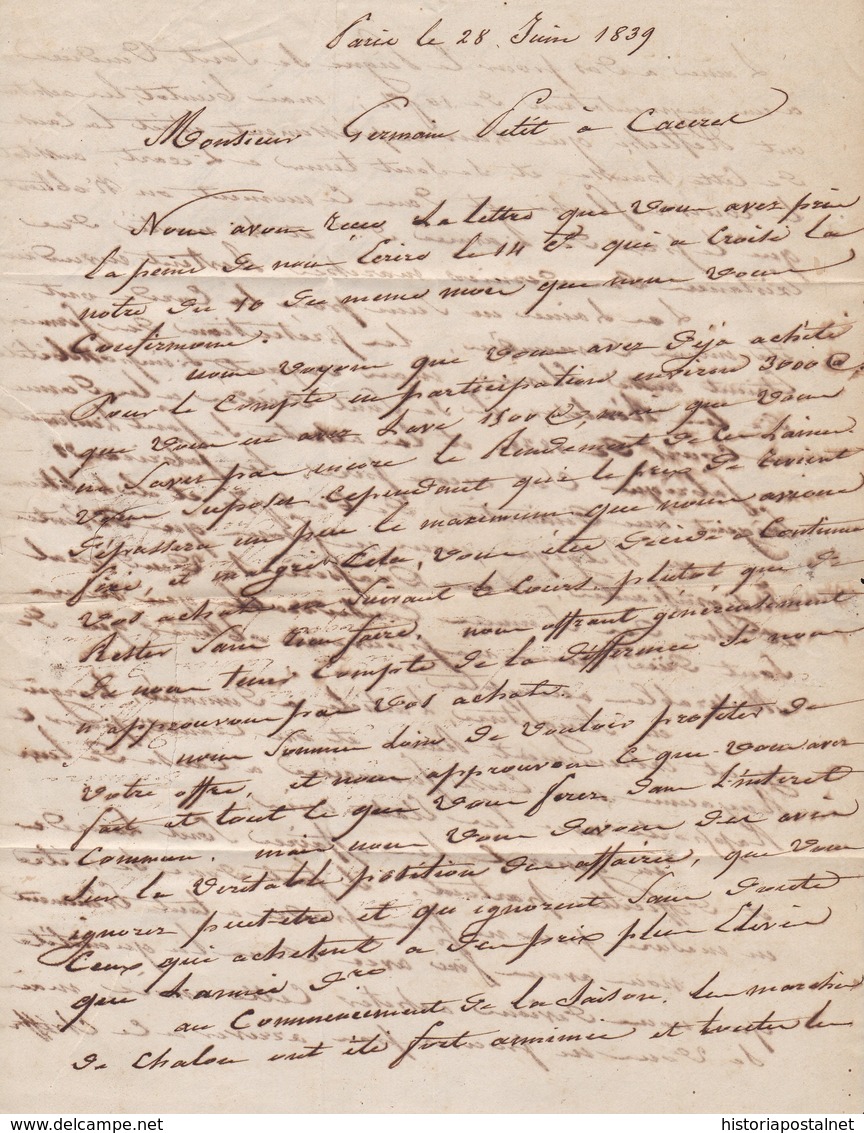 Paris le 28 Juin 1839
Monsieur Germain Petit à Caceres
Nous avons recu la lettre que vous avez pris
la peine de nous Ecrire le 14 Ct. qui a Croisé la
notre du 10 du meme mois que nous vous
Confirmons.
nous voyons que vous avez déja acheté
Pour le Compte en participation environ 3000
que vous en avez Lavé 1500 mais que vous
ne Savez pas encore le Rendement de ces Laines
vous Suposez Cependant que le prix de Revient
dépassera un peu le maximum que nous avions
fixé, et malgré Cela, vous êtes decidé a Continuer
vos achats en Suivant le Cours plutot que de
Rester Sans rien faire. nous offrant généreusement
de nous tenir Compte de la différence Si nous
n'approuvons pas vos achats.
nous Sommes loins de vouloir profiter de
votre offre, et nous approuvons ce que vous avez
fait et tout ce que vous ferez dans L'interet
Commun. mais nous vous devons des avis
Sur la veritable position des affaires, que vous
ignorez peut-etre et qu'ignorent Sans doute
Ceux qui achetent a des prix plus Elevés
que L'année dre
au Commencement de la Saison. les marchés
de Chalons ont été fort animés et toutes les
historiapostalnet